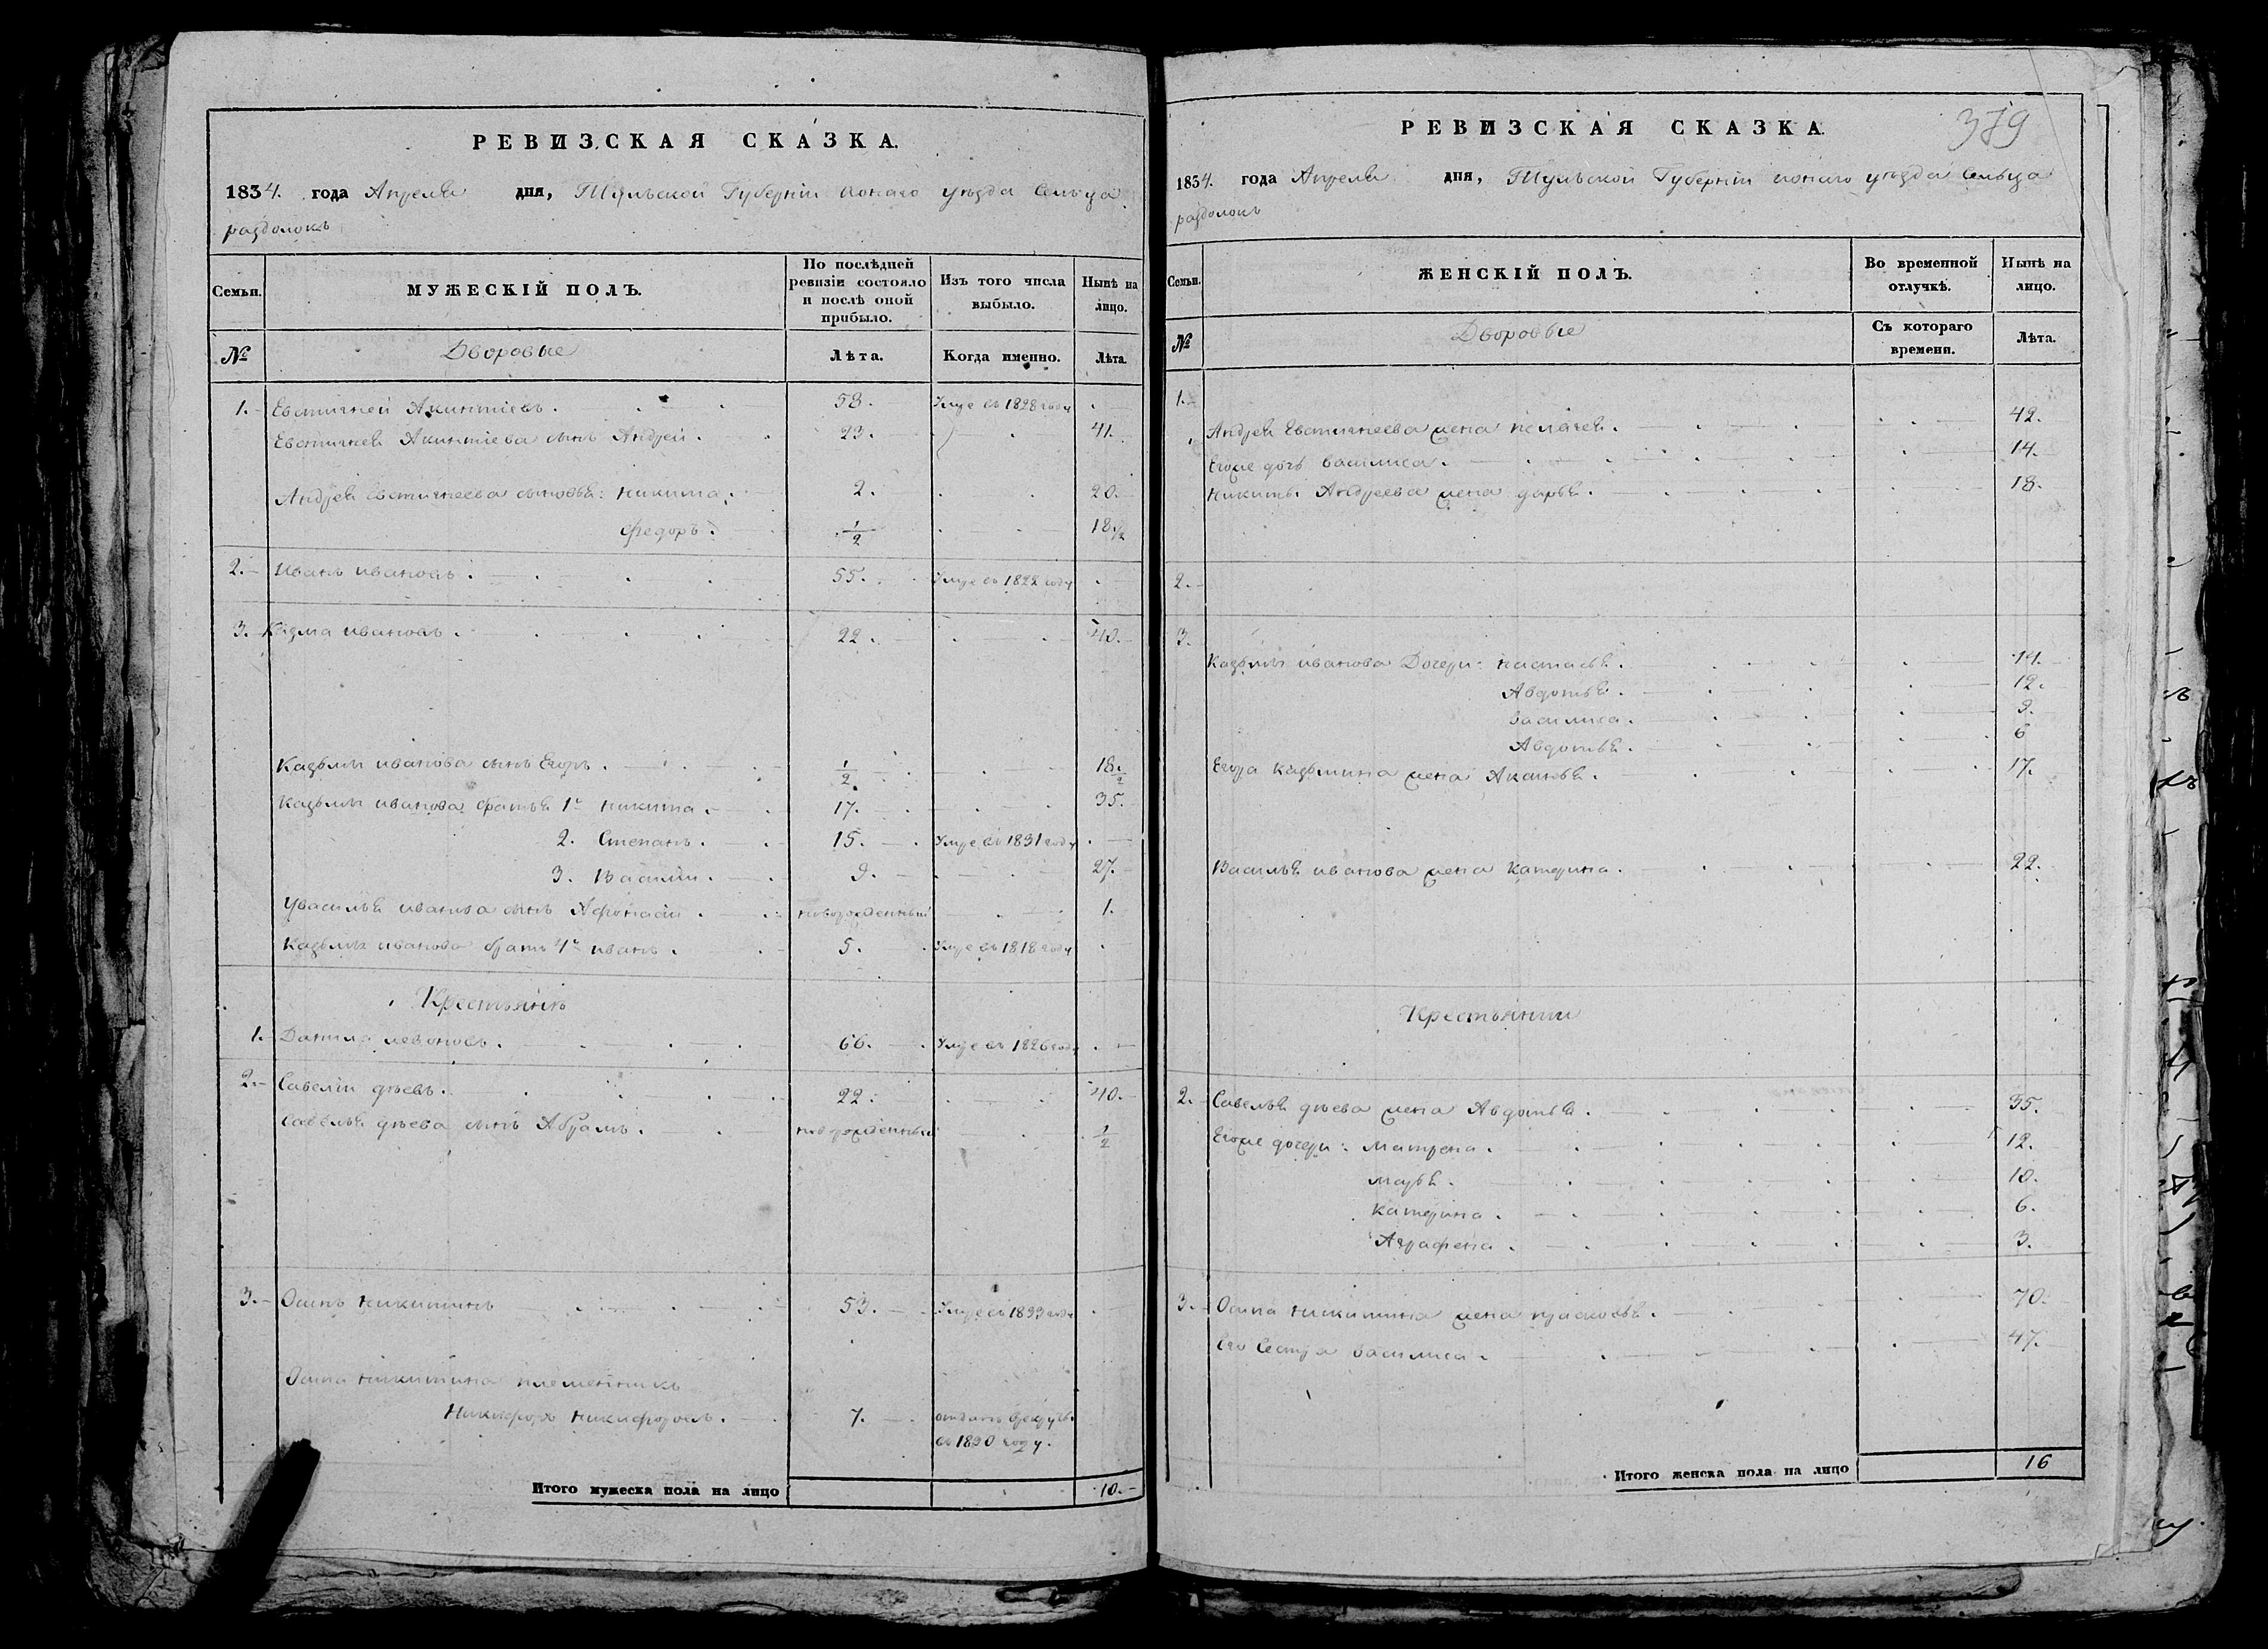 РЕВИЗСКАЯ СКАЗКА.
1834. года Апреля дня, Тульской Губернии оного уезда Сельца
раздолокъ
Семьи.
МУЖЕСКІЙ ПОЛЪ.
По послѣдней ревизіи состояло и послѣ оной прибыло.
Изъ того числа выбыло.
Нынѣ на лицо.
№
Дворовые
Лѣта.
Когда именно.
Лѣта.
1. Евстигней Акинтіевъ. 58. Умре въ 1828 году
Евстигнея Акинтіева сынъ Андрей. 23. 41.
Андрея Евстигнеева сыновья: никита. 2. 20.
федоръ. 1/2 18. 1/2
2. Иванъ ивановъ. 55. Умре въ 1822 году
3. Казма ивановъ. 22. 40.
Казьмы иванова сынъ Егоръ. 1/2 18. 1/2
Казьмы иванова братья 1й никита. 17. 35.
2. Степанъ. 15. Умре въ 1831 году
3. Василий. 9. 27.
У василья иванова сынъ Афонасий. новорожденный 1.
Казьмы иванова братъ 4й иванъ. 5. Умре въ 1818 году
Крестьянѣ
1. Данила левоновъ. 66. Умре въ 1826 году
2. Савелій дѣевъ. 22. 40.
Савелья дѣева сынъ Абрамъ. новорожденный 1/2
3. Осипъ никитинъ 53. Умре въ 1833 году
Осипа никитина племенникъ
Никифоръ никифоровъ. 7. отданъ врекруты
въ 1830 году.
Итого мужеска пола на лицо 10.
379
РЕВИЗСКАЯ СКАЗКА.
1834. года Апреля дня, Тульской Губернии оного уезда Сельца
раздолокъ
Семьи.
ЖЕНСКІЙ ПОЛЪ.
Во временной отлучкѣ.
Нынѣ на лицо.
№
Дворовые
Съ котораго времени.
Лѣта.
1.
Андрея Евстигнеева жена пелагея. 42.
Егоже дочь василиса. 14.
никиты Андреева жена дарья. 18.
2.
3.
Казьмы иванова Дочери: настасья. 14.
Авдотья. 12.
василиса. 9.
Авдотья. 6
Егора казьмина жена Аксинья. 17.
Василья иванова жена катерина. 22.
Крестьянии
2. Савелья дѣева жена Авдотья. 35.
Егоже дочери: матрена. 12.
марья. 10.
катерина. 6.
Аграфена. 3.
3. Осипа никитина жена прасковья. 70.
Его Сестра василиса. 47.
Итого женска пола на лицо 16